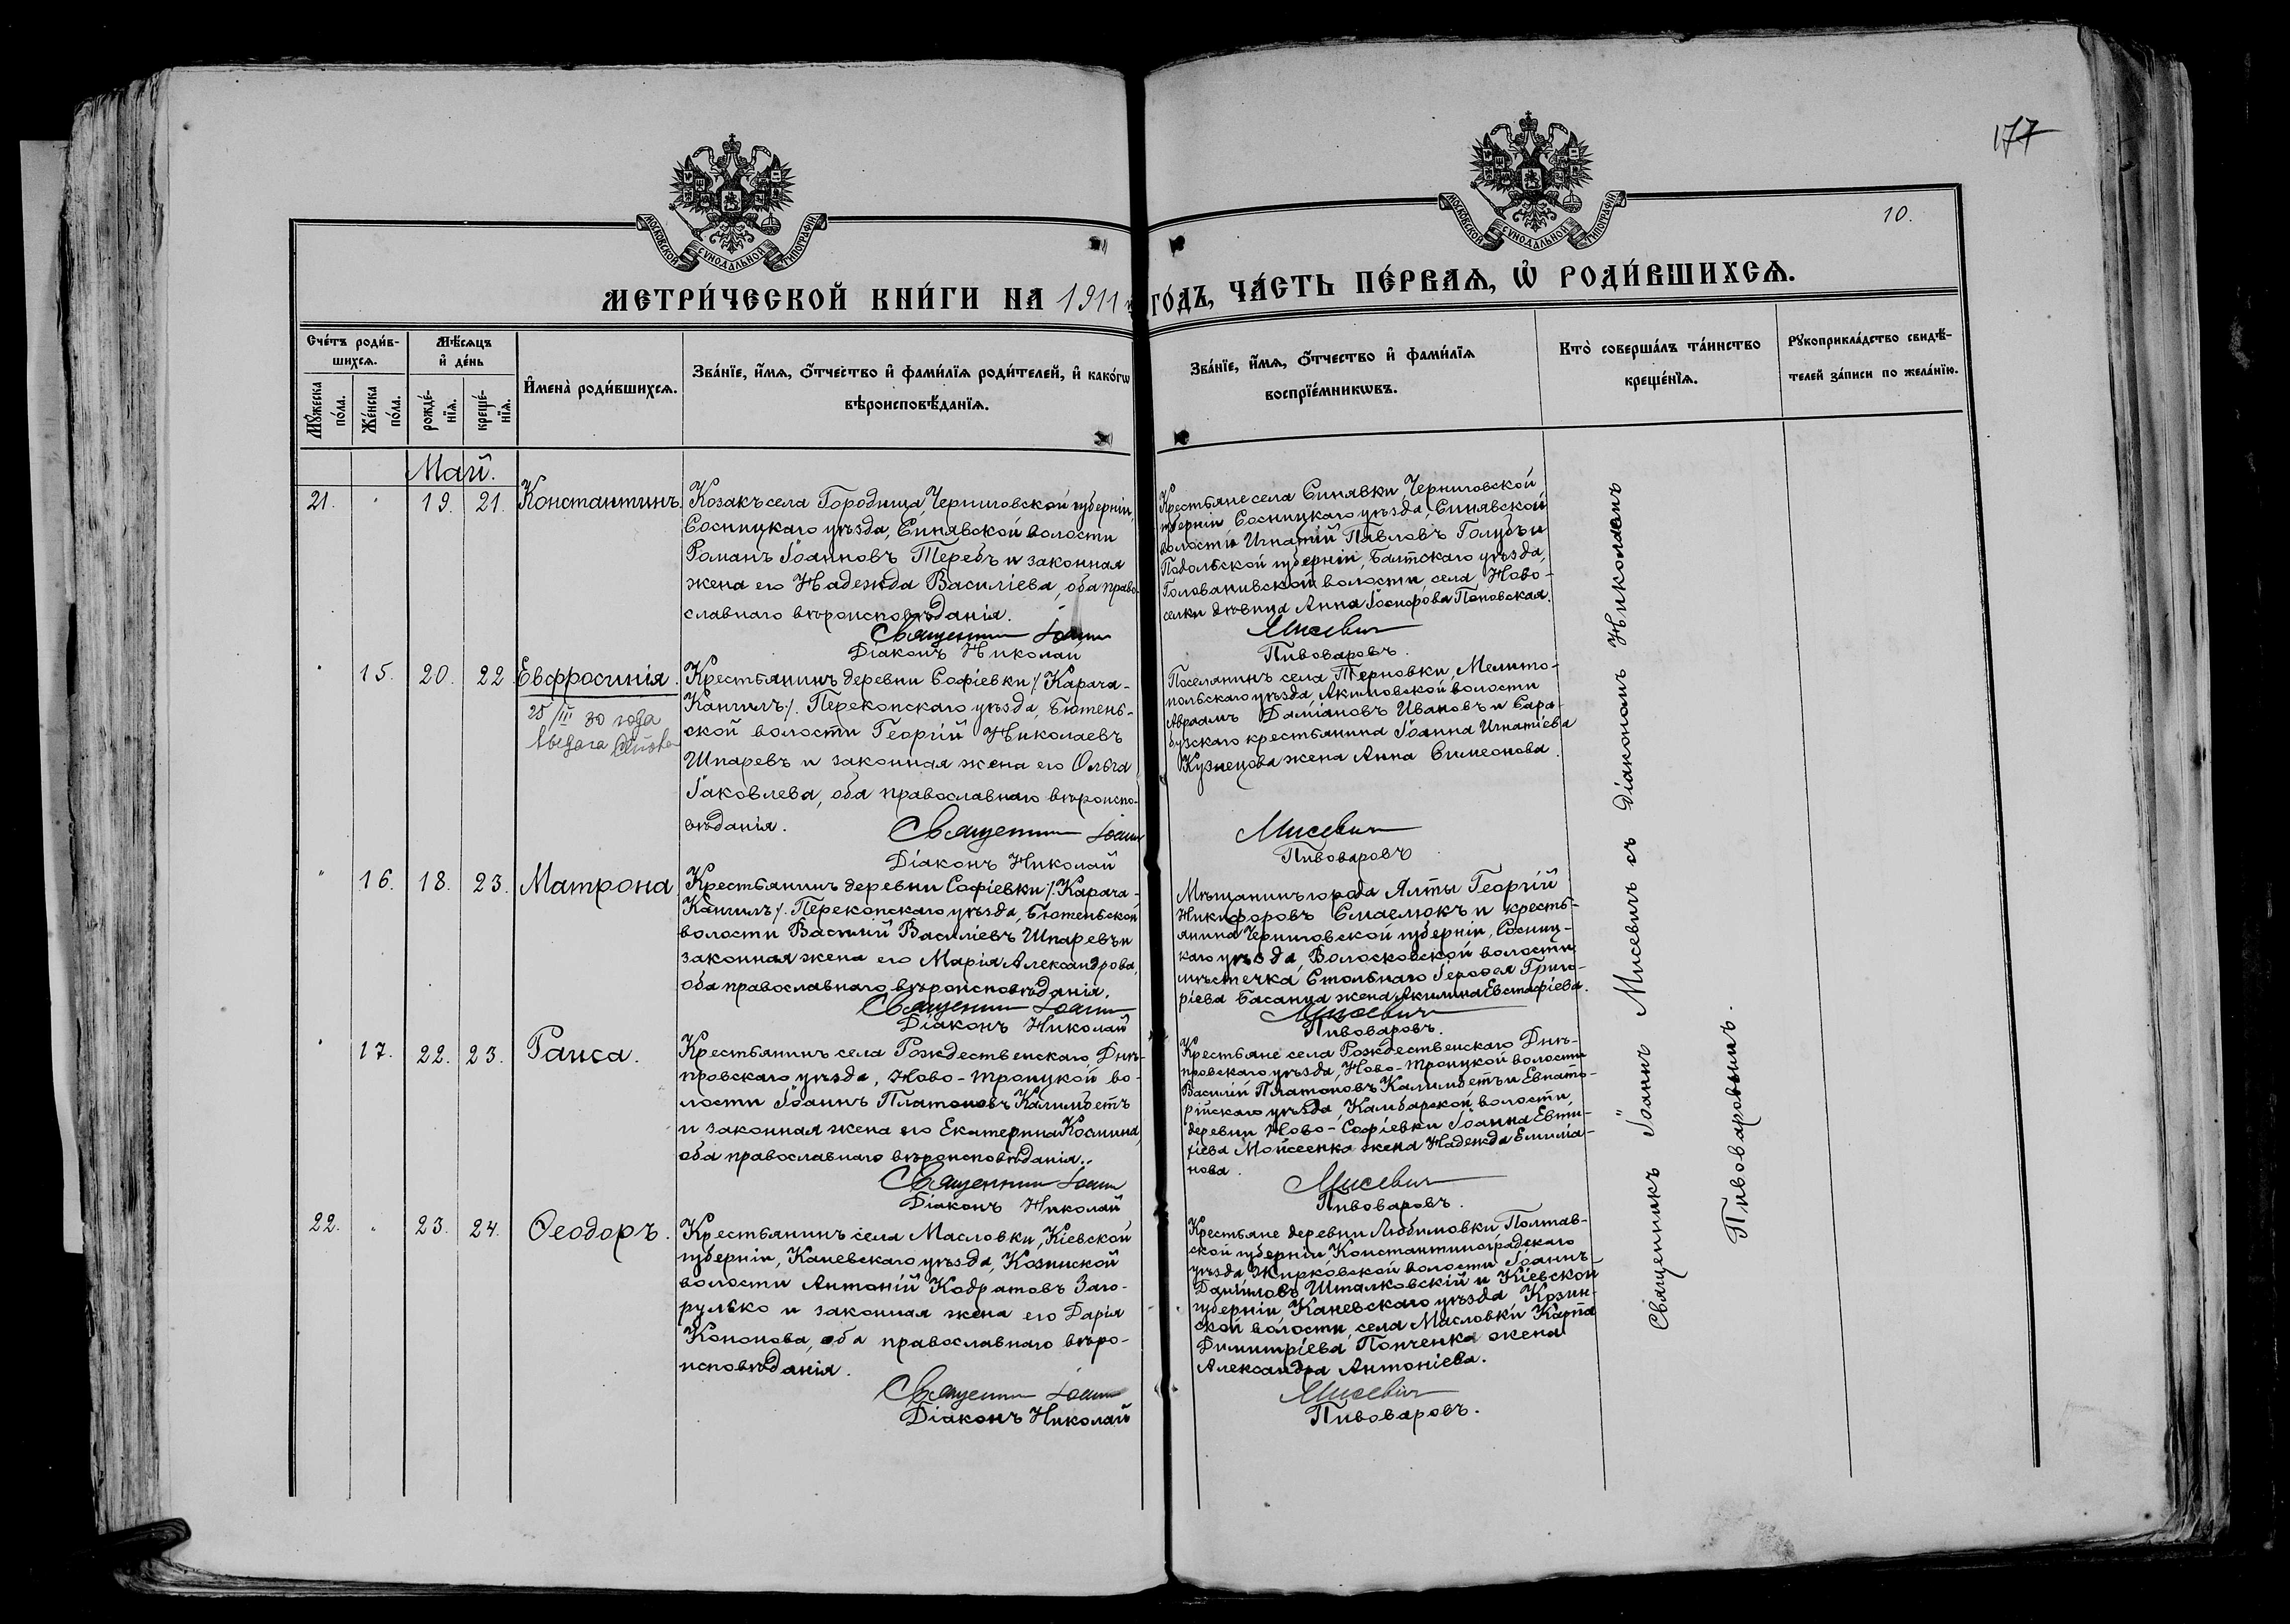 177
10.
МОСКОВСКОЙ СѴНОДАЛЬНОЙ ТИПОГРАФІИ
МОСКОВСКОЙ СѴНОДАЛЬНОЙ ТИПОГРАФІИ
МЕТРИ́ЧЕСКОЙ КНИ́ГИ НА 1911 ГО́ДЪ, ЧА́СТЬ ПЕ́РВАѦ, Ѽ РОДИ́ВШИХСѦ.
Сче́тъ роди́в-
шихсѧ.
Мꙋ́жеска по́ла.
Же́нска по́ла.
Мѣ́сѧцъ
и҆ де́нь
рожде́-
нїѧ.
креще́-
нїѧ.
И҆мена̀ роди́вшихсѧ.
Зва́нїе, и҆́мѧ, ѻ҆́тчество и҆ фами́лїѧ роди́телей, и҆ како́гѡ
вѣроисповѣ́данїѧ.
Зва́нїе, и҆́мѧ, ѻ҆́тчество и҆ фами́лїѧ
воспрїе́мникѡвъ.
Кто̀ соверша́лъ та́инство
креще́нїѧ.
Рꙋкоприкла́дство свидѣ́-
телей за́писи по жела́нїю.
Май.
21. " 19. 21. Константинъ.
Козакъ села Городища, Черниговской губерніи,
Сосницкаго уѣзда, Синявской волости
Романъ Іоанновъ Теребъ и законная
жена его Надежда Василіева, оба право-
славнаго вѣроисповѣданія.
Священникъ Іоаннъ
Діаконъ Николай
Крестьяне села Синявки, Черниговской
губерніи, Сосницкаго уѣзда, Синявской
волости Игнатій Павловъ Голубъ и
Подольской губерніи, Балтскаго уѣзда,
Голованивской волости, села Ново-
селки дѣвица Анна Іосифова Поповская.
Мисевичъ
Пивоваровъ.
" 15. 20. 22. Евфросинія.
25/III 30 года
Крестьянинъ деревни Софіевки /Карача-
Кангилъ/. Перекопскаго уѣзда, Бютень-
ской волости Георгій Николаевъ
Шпаревъ и законная жена его Ольга
Іаковлева, оба православнаго вѣроиспо-
вѣданія.
Священникъ Іоаннъ
Діаконъ Николай
Поселянинъ села Терновки, Мелито-
польскаго уѣзда, Акимовской волости
Авраамъ Даміановъ Ивановъ и Сара-
бузскаго крестьянина Іоанна Игнатіева
Кузнецова жена Анна Симеонова.
Мисевичъ
Пивоваровъ
" 16. 18. 23. Матрона
Крестьянинъ деревни Софіевки /Карача-
Кангилъ/. Перекопскаго уѣзда, Бютеньской
волости Василій Василіевъ Шпаревъ и
законная жена его Марія Александрова,
оба православнаго вѣроисповѣданія.
Священникъ Іоаннъ
Діаконъ Николай
Мѣщанинъ города Ялты Георгій
Никифоровъ Смаелюкъ и кресть-
янина Черниговской губерніи, Сосниц-
каго уѣзда, Волосковской волости
мѣстечка Стольнаго Герасима Григо-
ріева Басанца жена Акилина Евстафіева.
Мисевичъ
Пивоваровъ.
" 17. 22. 23. Раиса.
Крестьянинъ села Рождественскаго, Днѣ-
провскаго уѣзда, Ново-Троицкой во-
лости Іоаннъ Платоновъ Калимбетъ
и законная жена его Екатерина Космина,
оба православнаго вѣроисповѣданія.
Священникъ Іоаннъ
Діаконъ Николай
Крестьяне села Рождественскаго Днѣ-
провскаго уѣзда, Ново-Троицкой волости
Василій Платоновъ Калимбетъ и Евпато-
рійскаго уѣзда, Камбарской волости,
деревни Ново-Софіевки Іоанна Евти-
хіева Мойсеенка жена Надежда Емиліа-
нова.
Мисевичъ
Пивоваровъ.
22. " 23. 24. Ѳеодоръ.
Крестьянинъ села Масловки, Кіевской
губерніи, Каневскаго уѣзда, Козинской
волости Антоній Кодратовъ Заго-
рулько и законная жена его Дарія
Кононова, оба православнаго вѣро-
исповѣданія.
Священникъ Іоаннъ
Діаконъ Николай
Крестьяне деревни Любимовки, Полтав-
ской губерніи Константиноградскаго
уѣзда, Жирковской волости Іоаннъ
Даниловъ Шталковскій и Кіевской
губерніи Каневскаго уѣзда Козин-
ской волости, села Масловки Карпа
Димитріева Попченка жена
Александра Антоніева.
Мисевичъ
Пивоваровъ.
Священникъ Іоаннъ Мисевичъ съ діакономъ Николаемъ
Пивоваровымъ.